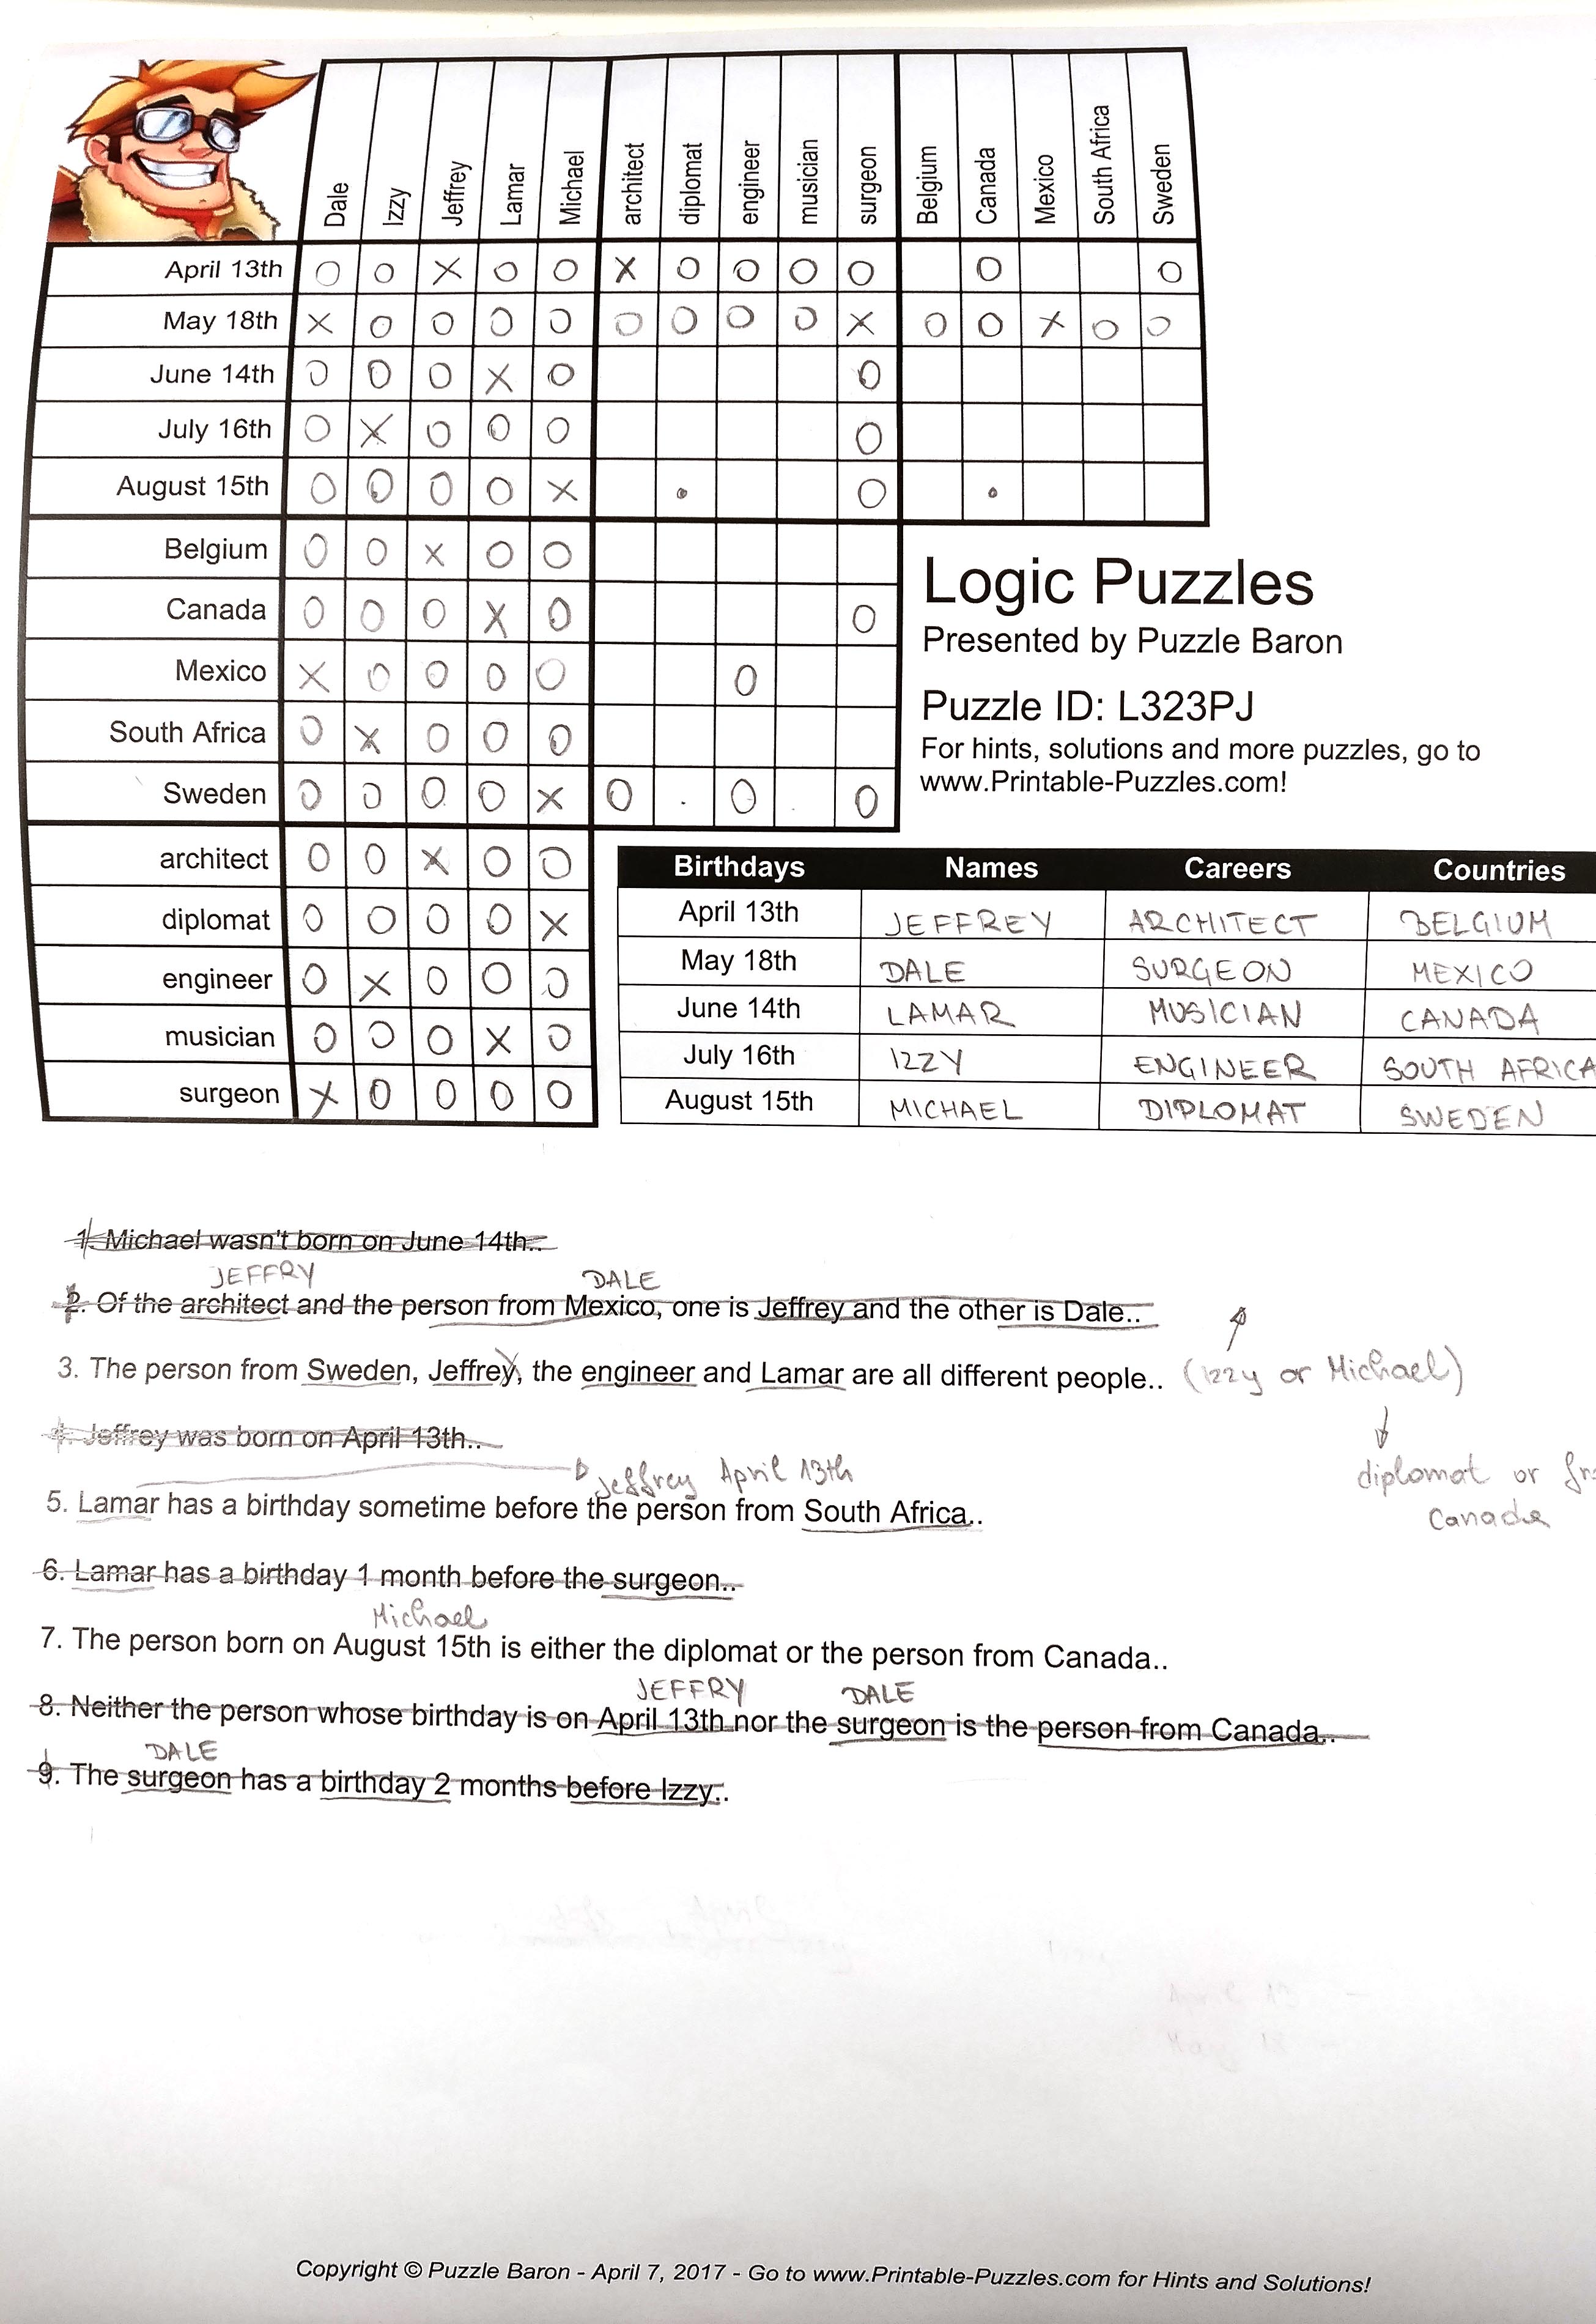 Dale Izzy Jeffrey Lamar Michael architect diplomat engineer musician surgeon Belgium Canada Mexico South Africa Sweden
April 13th O O X O O X O O O O O O
May 18th X O O O O O O O O X O O X O O
June 14th O O O X O O
July 16th O X O O O O
August 15th O O O O X O
Belgium O O X O O
Canada O O O X O O
Mexico X O O O O O
South Africa O X O O O
Sweden O O O O X O O O
architect O O X O O
diplomat O O O O X
engineer O X O O O
musician O O O X O
surgeon X O O O O
Logic Puzzles
Presented by Puzzle Baron
Puzzle ID: L323PJ
For hints, solutions and more puzzles, go to
www.Printable-Puzzles.com!
Birthdays Names Careers Countries
April 13th JEFFREY ARCHITECT BELGIUM
May 18th DALE SURGEON MEXICO
June 14th LAMAR MUSICIAN CANADA
July 16th IZZY ENGINEER SOUTH AFRICA
August 15th MICHAEL DIPLOMAT SWEDEN
1. Michael wasn't born on June 14th..
JEFFRY DALE
2. Of the architect and the person from Mexico, one is Jeffrey and the other is Dale..
3. The person from Sweden, Jeffrey, the engineer and Lamar are all different people.. (Izzy or Michael)
4. Jeffrey was born on April 13th..
Jeffrey April 13th
diplomat or
Canada
5. Lamar has a birthday sometime before the person from South Africa..
6. Lamar has a birthday 1 month before the surgeon..
Michael
7. The person born on August 15th is either the diplomat or the person from Canada..
JEFFRY DALE
8. Neither the person whose birthday is on April 13th nor the surgeon is the person from Canada..
DALE
9. The surgeon has a birthday 2 months before Izzy..
Copyright © Puzzle Baron - April 7, 2017 - Go to www.Printable-Puzzles.com for Hints and Solutions!